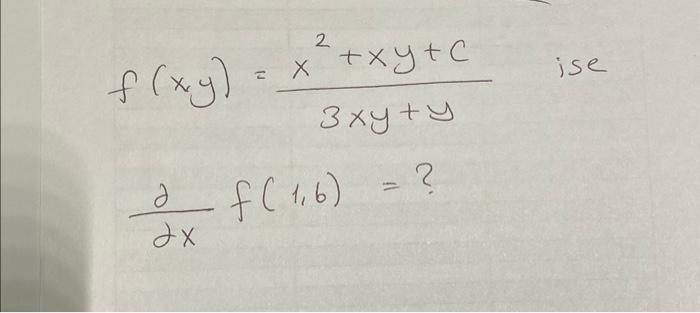 f(xy) = \frac{x^2+xy+c}{3xy+y} ise
\frac{∂}{∂x} f(1,6) = ?